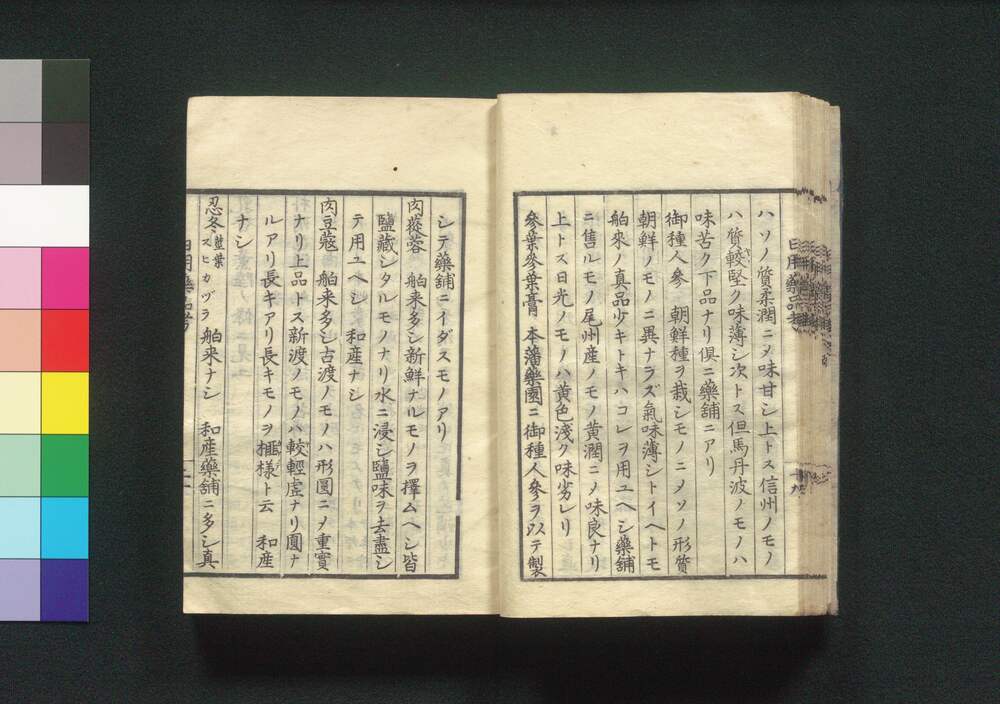 ハソノ質柔潤ニメ味甘シ上トス信州ノモノ
ハ質較堅ク味薄シ次トス但馬丹波ノモノハ
味苦ク下品ナリ倶ニ藥舗ニアリ
御種人參 朝鮮種ヲ栽シモノニメソノ形質
朝鮮ノモノニ異ナラズ氣味薄シトイヘトモ
舶來ノ真品少キトキハコレヲ用ユヘシ藥舗
ニ售ルモノ尾州産ノモノ黄潤ニメ味良ナリ
上トス日光ノモノハ黄色淺ク味劣レリ
參葉參葉膏 本藩藥園ニ御種人參ヲ以テ製
シテ藥舗ニイダスモノアリ
肉蓯蓉 舶来多シ新鮮ナルモノヲ擇ムヘシ皆
鹽藏シタルモノナリ水ニ浸シ鹽味ヲ去盡シ
テ用ユヘシ 和産ナシ
肉豆蔲 舶来多シ古渡ノモノハ形圓ニメ重實
ナリ上品トス新渡ノモノハ較輕虚ナリ圓ナ
ルアリ長キアリ長キモノヲ樣ト云 和産
ナシ
忍冬 莖葉 スヒカヅラ 舶来ナシ 和産藥舗ニ多シ真
日用藥品考